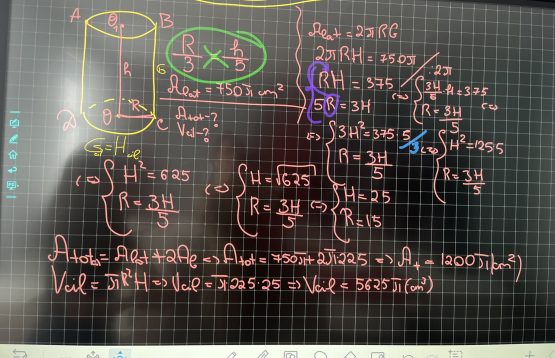 A O₁ B
R/3 × h/5
h G
A_lat = 750π cm²
D O R C
A_tot = ?
V_cil = ?
G = H_cil
A_lat = 2πRG
2πRH = 750π / :2π
{ RH = 375
5R = 3H
⇔ { 3H/5 · H = 375
R = 3H/5 ⇔
⇔ { 3H² = 375·5 /:3
R = 3H/5
⇔ { H² = 125·5
R = 3H/5
⇔ { H² = 625
R = 3H/5
⇔ { H = √625
R = 3H/5
⇔ { H = 25
R = 15
A_total = A_lat + 2A_b ⇒ A_tot = 750π + 2π225 ⇒ A_t = 1200π (cm²)
V_cil = πR²H ⇒ V_cil = π225·25 ⇒ V_cil = 5625π (cm³)